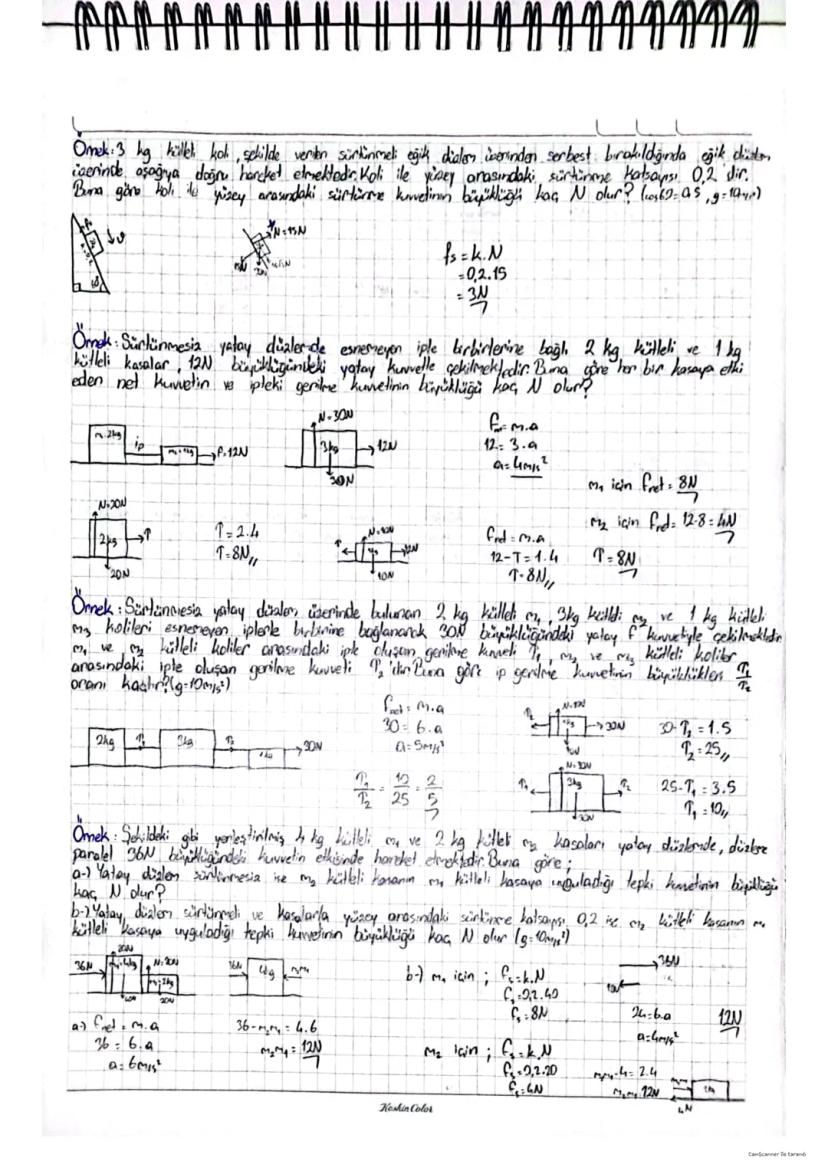 Örnek: 3 kg kütleli koli, şekilde verilen sürtünmeli eğik düzlem üzerinden serbest bırakıldığında eğik düzlem
üzerinde aşağıya doğru hareket etmektedir. Koli ile yüzey arasındaki sürtünme katsayısı 0,2 dir.
Buna göre koli ile yüzey arasındaki sürtünme kuvvetinin büyüklüğü kaç N olur?
N=15N
fs=k.N
=0,2.15
=3N
Örnek: Sürtünmesiz yatay düzlemde esnemeyen iple birbirlerine bağlı 2 kg kütleli ve 1 kg
kütleli kasalar, 12N büyüklüğündeki yatay kuvvetle çekilmektedir. Buna göre her bir kasaya etki
eden net kuvvetin ve ipteki gerilme kuvvetinin büyüklüğü kaç N olur?
ip F=12N
N=30N
3kg 12N
30N
Fnet=m.a
12=3.a
a=4m/s²
m₁ için fnet=8N
m₂ için fnet=12-8=4N
T=8N
N=20N
2kg T
20N
T=2.4
T=8N
T 12N
10N
fnet=m.a
12-T=1.4
T=8N
Örnek: Sürtünmesiz yatay düzlem üzerinde bulunan 2 kg kütleli m₁, 3kg kütleli m₂ ve 1 kg kütleli
m₃ kolileri esnemeyen iplerle birbirine bağlanarak 30N büyüklüğündeki yatay F kuvvetiyle çekilmektedir.
m₁ ve m₂ kütleli koliler arasındaki ipte oluşan gerilme kuvveti T₁, m₂ ve m₃ kütleli koliler
arasındaki ipte oluşan gerilme kuvveti T₂'dir. Buna göre ip gerilme kuvvetinin büyüklükleri T₁/T₂
oranı kaçtır? (g=10m/s²)
2kg T₁ 3kg T₂ 30N
fnet=m.a
30=6.a
a=5m/s²
T₁/T₂ = 10/25 = 2/5
T₂ 30N
30-T₂=1.5
T₂=25
N=30N
T₁ 3kg T₂
30N
25-T₁=3.5
T₁=10
Örnek: Şekildeki gibi yerleştirilmiş 4 kg kütleli m₁ ve 2 kg kütleli m₂ kasaları yatay düzlemde, düzleme
paralel 36N büyüklüğündeki kuvvetin etkisinde hareket etmektedir. Buna göre;
a-) Yatay düzlem sürtünmesiz ise m₂ kütleli kasanın m₁ kütleli kasaya uyguladığı tepki kuvvetinin büyüklüğü
kaç N olur?
b-) Yatay düzlem sürtünmeli ve kasalarla yüzey arasındaki sürtünme katsayısı 0,2 ise m₂ kütleli kasanın m₁
kütleli kasaya uyguladığı tepki kuvvetinin büyüklüğü kaç N olur (g=10m/s²)
36N
N=20N
40N 20N
36N 4kg
a-) fnet=m.a
36=6.a
a=6m/s²
36-m₂m₁=4.6
m₂m₁=12N
b-) m₁ için; fs=k.N
fs=0,2.40
fs=8N
m₂ için; fs=k.N
fs=0,2.20
fs=4N
36N
24=6.a
a=4m/s²
12N
4N
Keskin Color
CamScanner ile tarandı